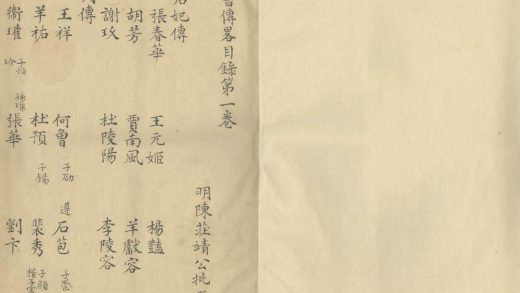 傳畧目錄第一卷
明陳莊靖公批
妃傳
張春華 王元姬 楊豔
胡芳 賈南風 羊獻容
謝玖 杜陵陽 李陵容
傳
王祥 何曾 子劭 遵 石苞 子崇
羊祜 杜預 子錫 裴秀 子頠
衞瓘 子恒 玠 張華 劉卞